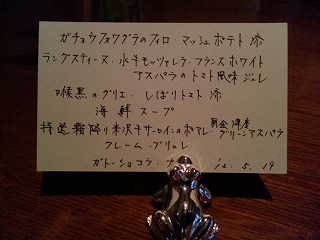 ガチョウフォワグラのフィロ・マッシュポテト添
ラングスティーヌ・水牛モッツァレラ・フランスホワイト
アスパラのトマト風味ジュレ
喉黒のグリエ・しぼりトマト添
海鮮スープ
特選霜降り米沢牛サーロインのポワレ グリーンアスパラ
クレーム・ブリュレ
ガトーショコラ
12.5.19